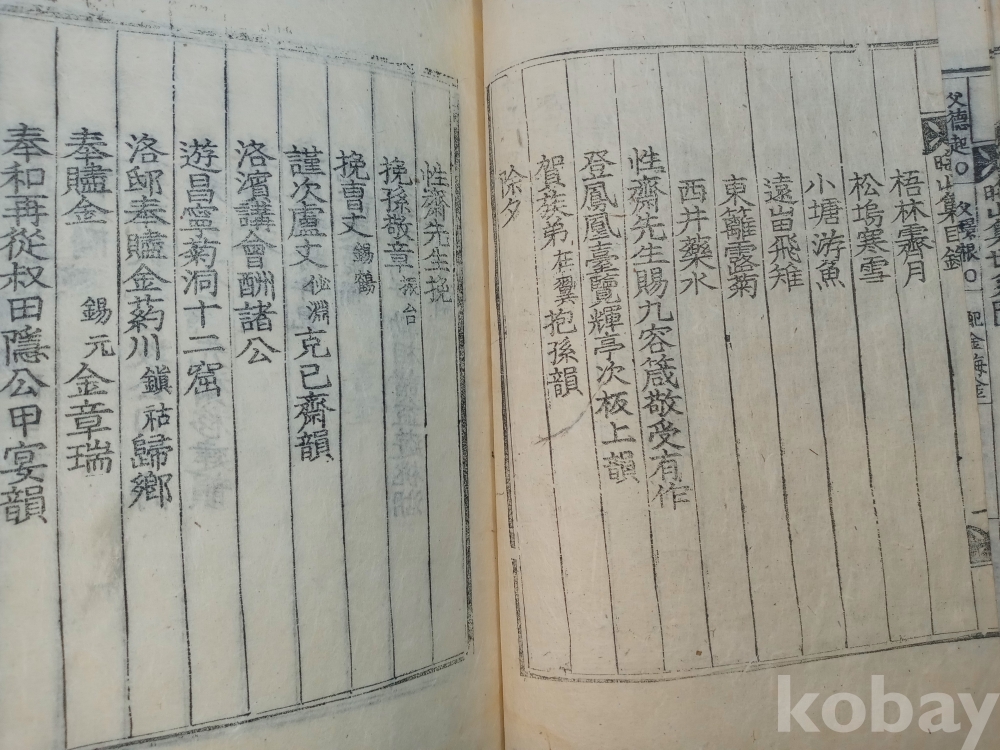 父德起○
配金海金
山集目錄
梧林霽月
松塢寒雪
小塘游魚
遠峀飛雉
東籬露菊
西井藥水
性齋先生賜九容箴敬受有作
登鳳凰臺覽輝亭次板上韻
賀族弟在翼抱孫韻
除夕
性齋先生挽
挽孫敬章
挽曺丈錫鶴
謹次盧丈佖淵克己齋韻
洛濱講會酬諸公
遊昌寧菊洞十二窟
洛邸奉贐金葯川鎭祜歸鄕
奉贐金錫元金章瑞
奉和再從叔田隱公甲宴韻
kobay